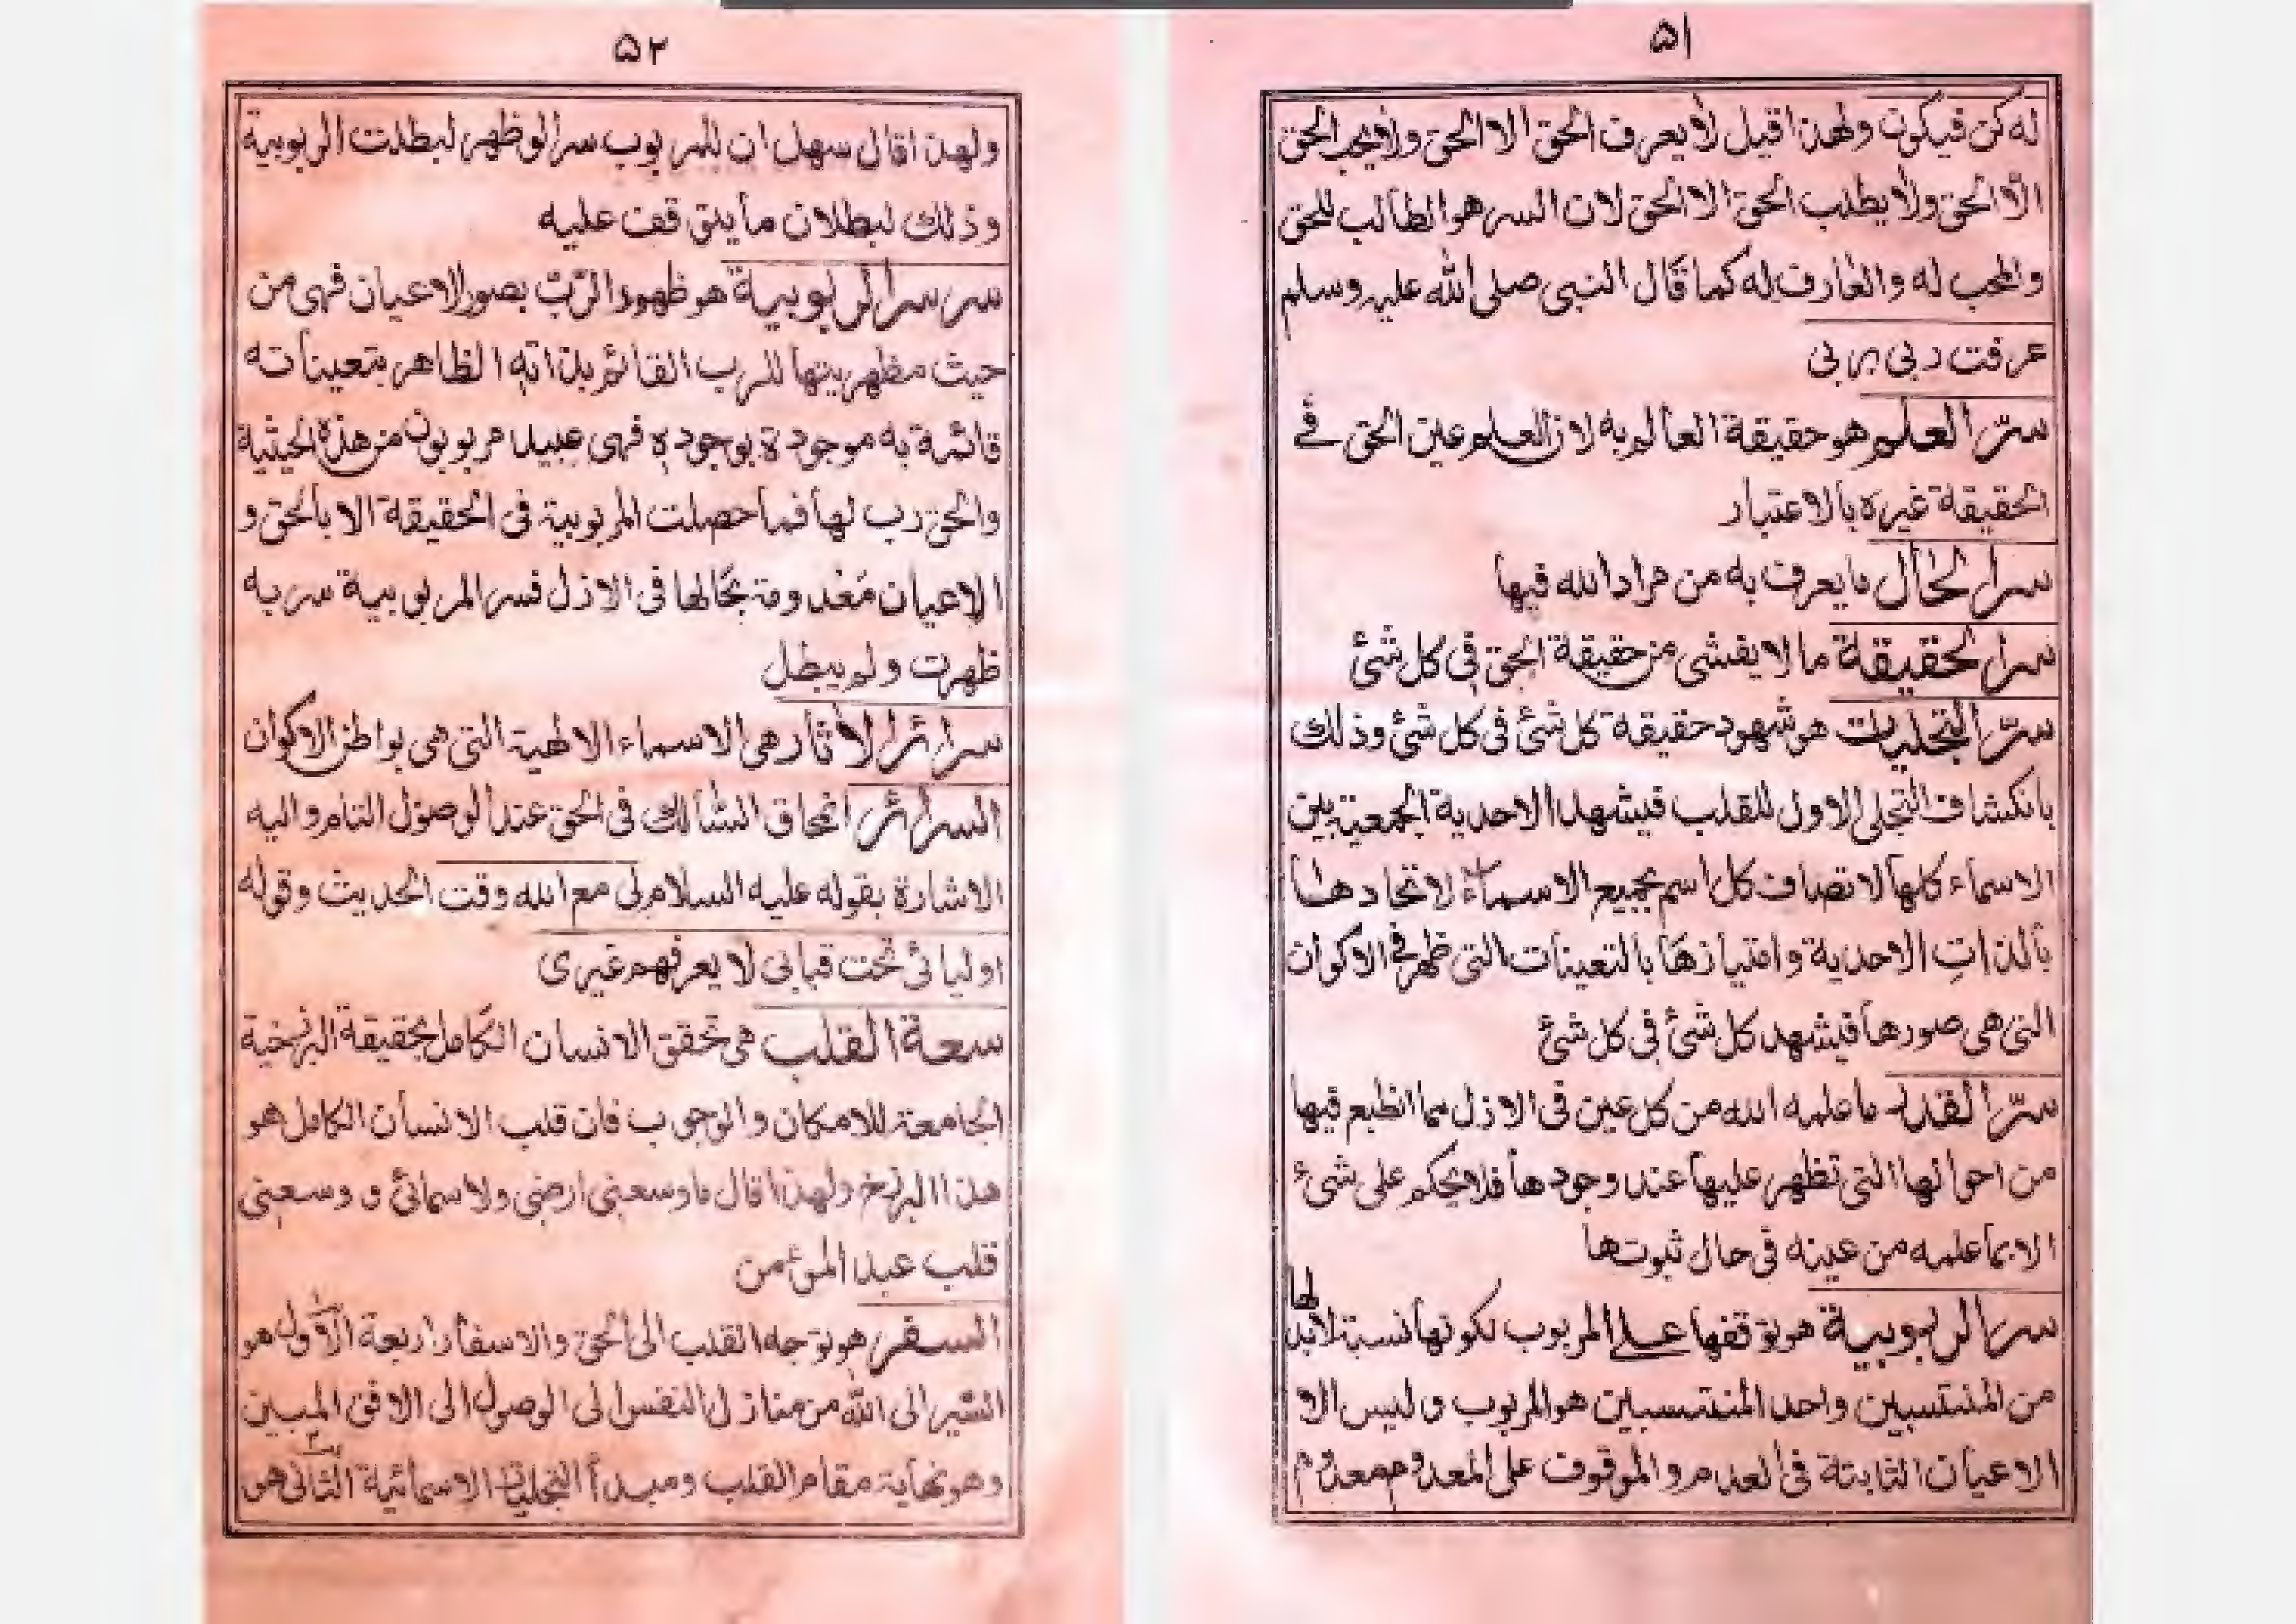 ۵۱
له كن فيكون ولهذا قيل لا يعرف الحق الا الحق ولا يحب الحق
الا الحق ولا يطلب الحق الا الحق لان السر هو الطالب للحق
والمحب له والعارف له كما قال النبى صلى الله عليه وسلم
عرفت ربى بربى
سرّ العلم هو حقيقة العالم به لان العلم عين الحق فى
الحقيقة غيره بالاعتبار
سر الحال ما يعرف به من مراد الله فيها
سر الحقيقة ما لا يفشى من حقيقة الحق فى كل شئ
سرّ التجليات هو شهود حقيقة كل شئ فى كل شئ وذلك
بانكشاف التجلى الاول للقلب فيشهد الاحدية الجمعية بين
الاسماء كلها لاتصاف كل اسم بجميع الاسماء لاتحادها
بالذات الاحدية وامتيازها بالتعينات التى ظهر فى الاكوان
التى هى صورها فيشهد كل شئ فى كل شئ
سرّ القدر ما علمه الله من كل عين فى الازل مما انطبع فيها
من احوالها التى تظهر عليها عند وجودها فلا يحكم على شئ
الا بما علمه من عينه فى حال ثبوتها
سر الربوبية هو توقفها على المربوب لكونها نسبة لابد لها
من المنتسبين واحد المنتسبين هو المربوب وليس الا
الاعيان الثابتة فى العدم والموقوف على المعدوم معدوم
۵۲
ولهذا قال سهل ان للمربوب سرا لو ظهر لبطلت الربوبية
وذلك لبطلان ما يتوقف عليه
سر سر الربوبية هو ظهور الرّبّ بصور الاعيان فهى من
حيث مظهريتها للرب القائم بذاته الظاهر بتعيناته
قائمة به موجودة بوجوده فهى عبيد مربوبون من هذه الحيثية
والحق رب لها فما حصلت المربوبية فى الحقيقة الا بالحق و
الاعيان معدومة بحالها فى الازل فسر المربوبية سر به
ظهرت ولم يبطل
سرائر الأثار هى الاسماء الالهية التى هى بواطن الاكوان
السرائر انمحاق السالك فى الحق عند الوصول التام واليه
الاشارة بقوله عليه السلام لى مع الله وقت الحديث وقوله
اوليائى تحت قبابى لا يعرفهم غيرى
سعة القلب هى تحقق الانسان الكامل بحقيقة البرزخية
الجامعة للامكان والوجوب فان قلب الانسان الكامل هو
هذا البرزخ ولهذا قال ما وسعنى ارضى ولا سمائى و وسعنى
قلب عبد المؤمن
السفر هو توجه القلب الى الحق والاسفار اربعة الاول هو
السّير الى الله من منازل النفس الى الوصول الى الافق المبين
وهو نهاية مقام القلب ومبدأ التجليات الاسمائية الثانى هو